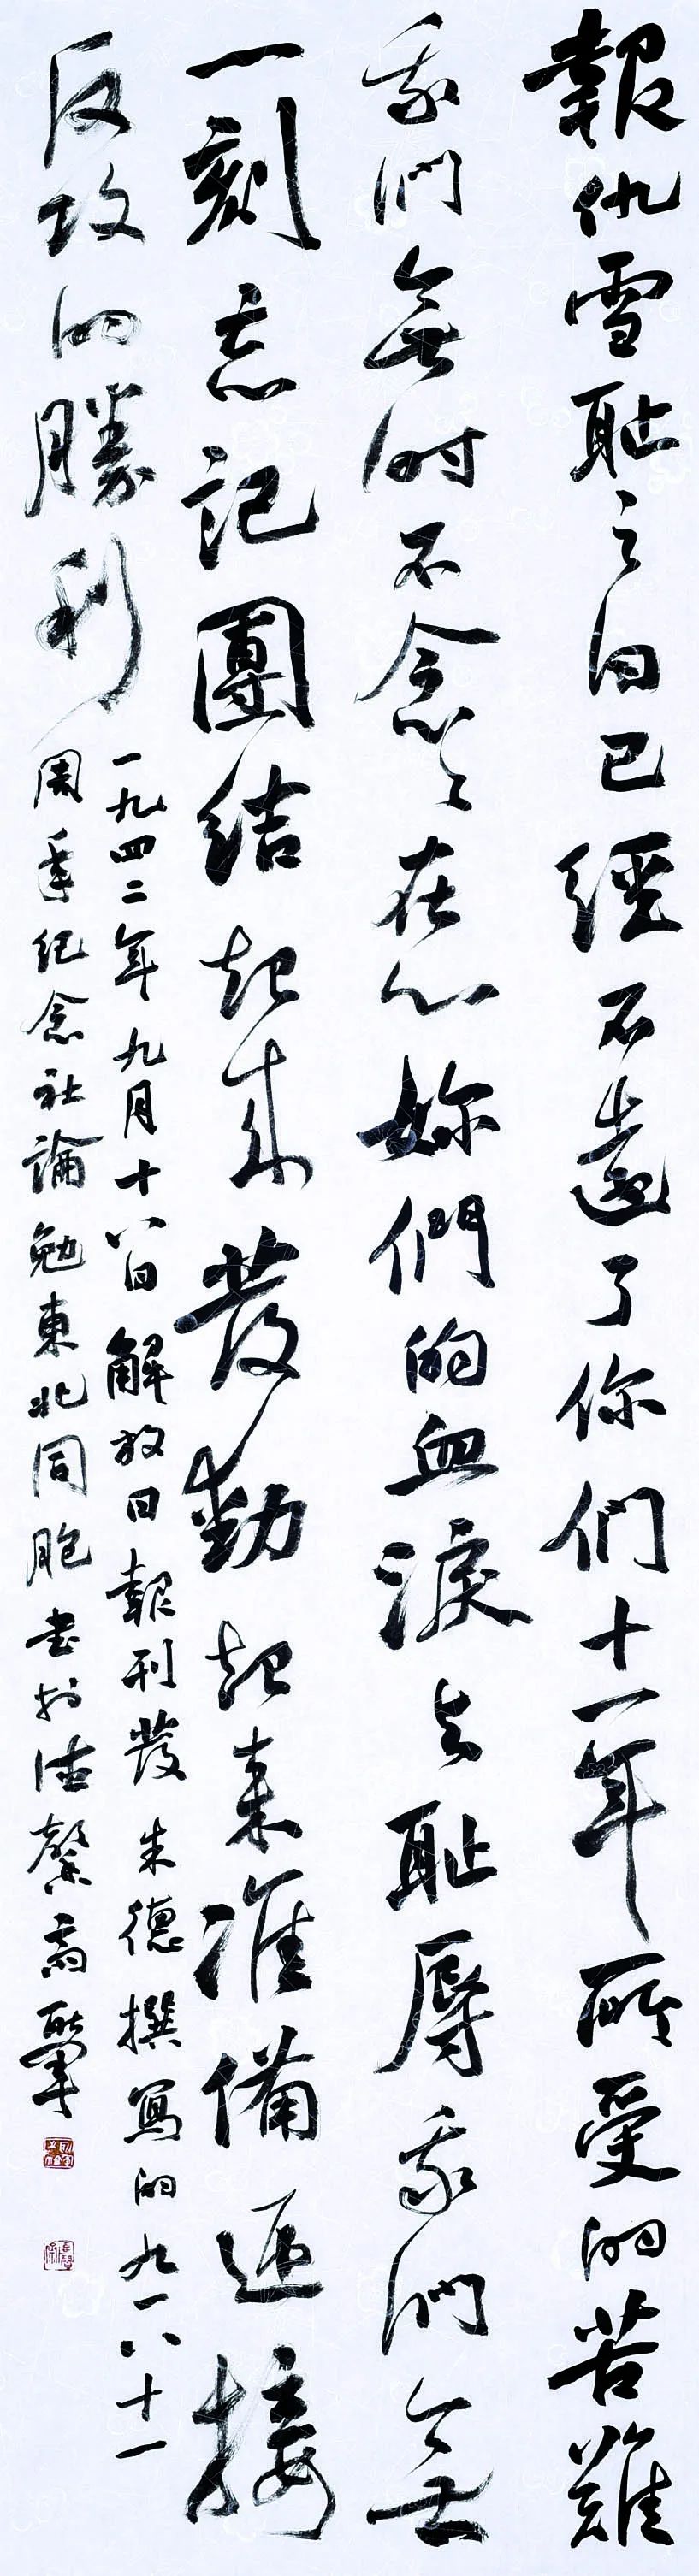 報仇雪恥之日已經不遠了你們十一年所受的苦難
我們無時不念々在心妳們的血淚与恥辱我們無
一刻忘記團結起來發動起來准備迎接
反攻的勝利
一九四二年九月十八日解放日報刊發朱德撰寫的九一八十一
周年紀念社論勉東北同胞書於德馨斎